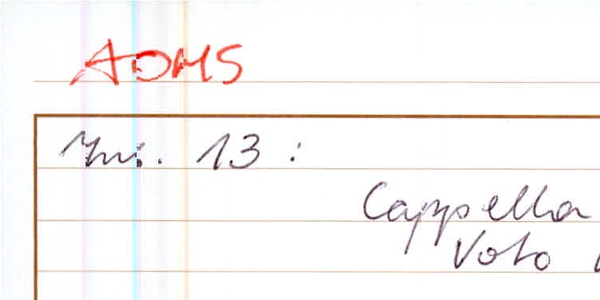 AOMS
Ins. 13 :
Cappella
Voto